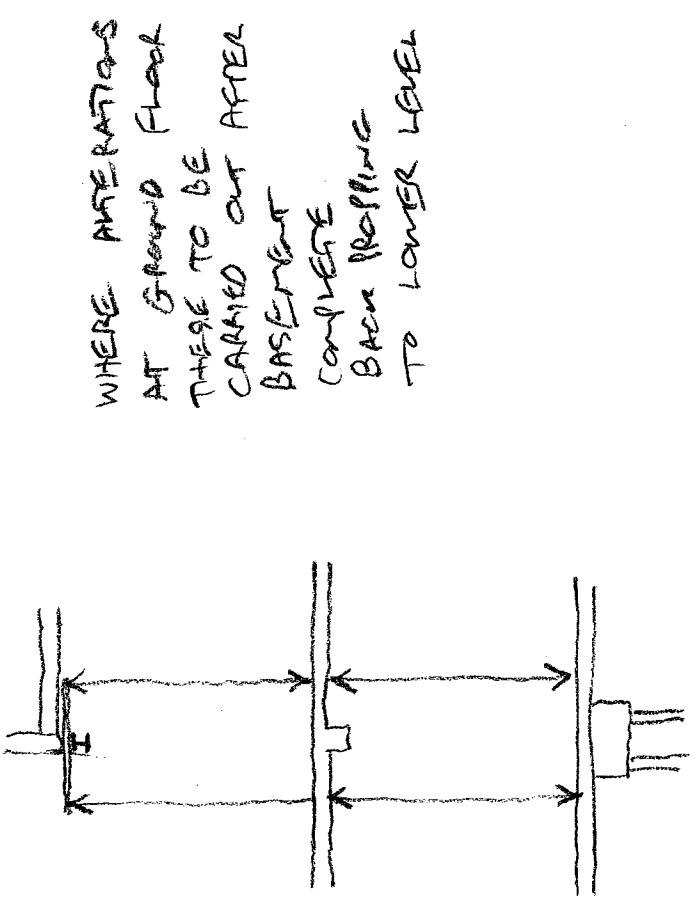 WHERE ALTERATIONS
AT GROUND FLOOR
THESE TO BE
CARRIED OUT AFTER
BASEMENT
COMPLETE
BACK PROPPING
TO LOWER LEVEL